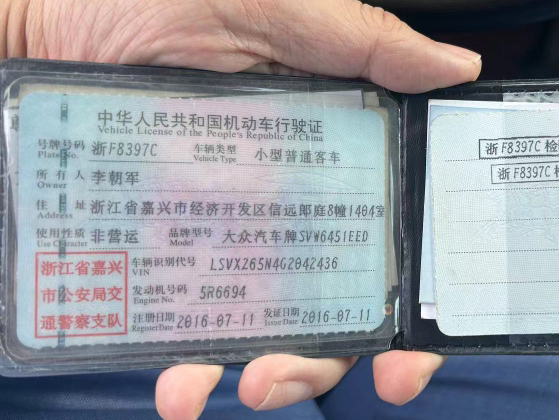 中华人民共和国机动车行驶证
Vehicle License of the People's Republic of China
号牌号码 浙F8397C 车辆类型 小型普通客车
Plate No. Vehicle Type
所有人 李朝军
Owner
住址 浙江省嘉兴市经济开发区信远郎庭8幢1404室
Address
使用性质 非营运 品牌型号 大众汽车牌SVW6451EED
Use Character Model
浙江省嘉兴
市公安局交
通警察支队
车辆识别代号 LSVX265N4G2042436
VIN
发动机号码 5R6694
Engine No.
注册日期 2016-07-11 发证日期 2016-07-11
Register Date Issue Date
浙F8397C 检
浙F8397C 检